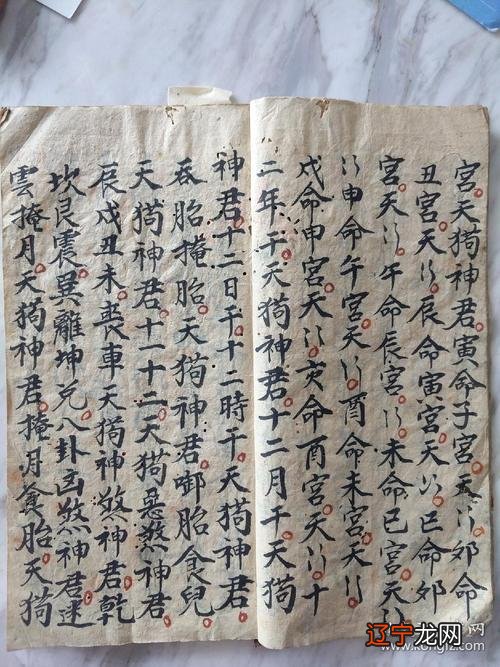 宮天狗神君寅命子宮天〻夘命
丑宮天〻辰命寅宮天〻巳命夘
宮天〻午命辰宮〻未命巳宮天〻
〻申命午宮天〻酉命未宮天〻
戌命申宮天〻亥命酉宮天〻十
二年干天狗神君十二月干天狗
神君十二日干十二時干天狗神君
吞胎掩胎天狗神君啣胎食兒
天狗神君十一十二天狗惡煞神君
辰戌丑未喪車天狗神煞神君乾
坎艮震巽離坤兌八卦凶煞神君迷
雲掩月天狗神君掩月食胎天狗
辽宁龙网